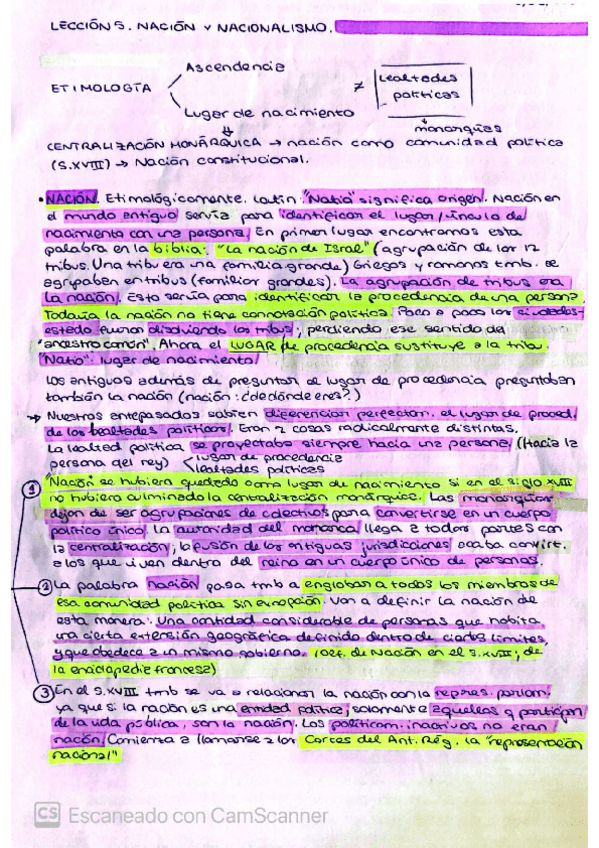 LECCIÓN 5. NACIÓN Y NACIONALISMO.
Ascendencia
ETIMOLOGÍA ≠ Lealtades
políticas
Lugar de nacimiento
monarquías
CENTRALIZACIÓN MONÁRQUICA → nación como comunidad política
(S.XVIII) → Nación constitucional.
• NACIÓN. Etimológicamente. Latín "Natio" significa origen. Nación en
el mundo antiguo servía para identificar el lugar/vínculo de
nacimiento con una persona. En primer lugar encontramos esta
palabra en la biblia: "La nación de Isral" (agrupación de las 12
tribus. Una tribu era una familia grande) Griegos y romanos tmb. se
agrupaban en tribus (familiar grandes). La agrupación de tribus era
la nación. Esto servía para identificar la procedencia de una persona.
Todavía la nación no tiene connotación política. Poco a poco las ciudades-
estado fueron disolviendo las tribus, perdiendo ese sentido de
"ancestro común". Ahora el LUGAR de procedencia sustituye a la tribu
"Natio": lugar de nacimiento
Los antiguos además de preguntar el lugar de procedencia preguntaban
también la nación (nación: ¿de dónde eres?)
→ Nuestros antepasados sabían diferenciar perfectam. el lugar de proced.
de las lealtades políticas. Eran 2 cosas radicalmente distintas.
La lealtad política se proyectaba siempre hacia una persona (Hacia la
persona del rey) lugar de procedencia
lealtades políticas
① Nación se hubiera quedado como lugar de nacimiento si en el siglo XVIII
no hubiera culminado la centralización monárquica. Las monarquías
dejan de ser agrupaciones de colectivos para convertirse en un cuerpo
político único. La autoridad del monarca llega a todas partes con
la centralización, la fusión de las antiguas jurisdicciones acaba convirt.
a los que viven dentro del reino en un cuerpo único de personas.
② La palabra nación pasa tmb a englobar a todos los miembros de
esa comunidad política sin excepción. Van a definir la nación de
esta manera: Una cantidad considerable de personas que habita
una cierta extensión geográfica definido dentro de ciertos límites,
y que obedece a un mismo gobierno. (Def. de Nación en el S.XVIII; de
la enciclopedia francesa)
③ En el S.XVIII tmb se va a relacionar la nación con la repres. parlam.
ya que si la nación es una entidad política, solamente aquellas q participan
de la vida pública, son la nación. Los políticam. inactivos no eran
nación. Comienza a llamarse a las Cortes del Ant. Rég. la "representación
nacional"
CS Escaneado con CamScanner